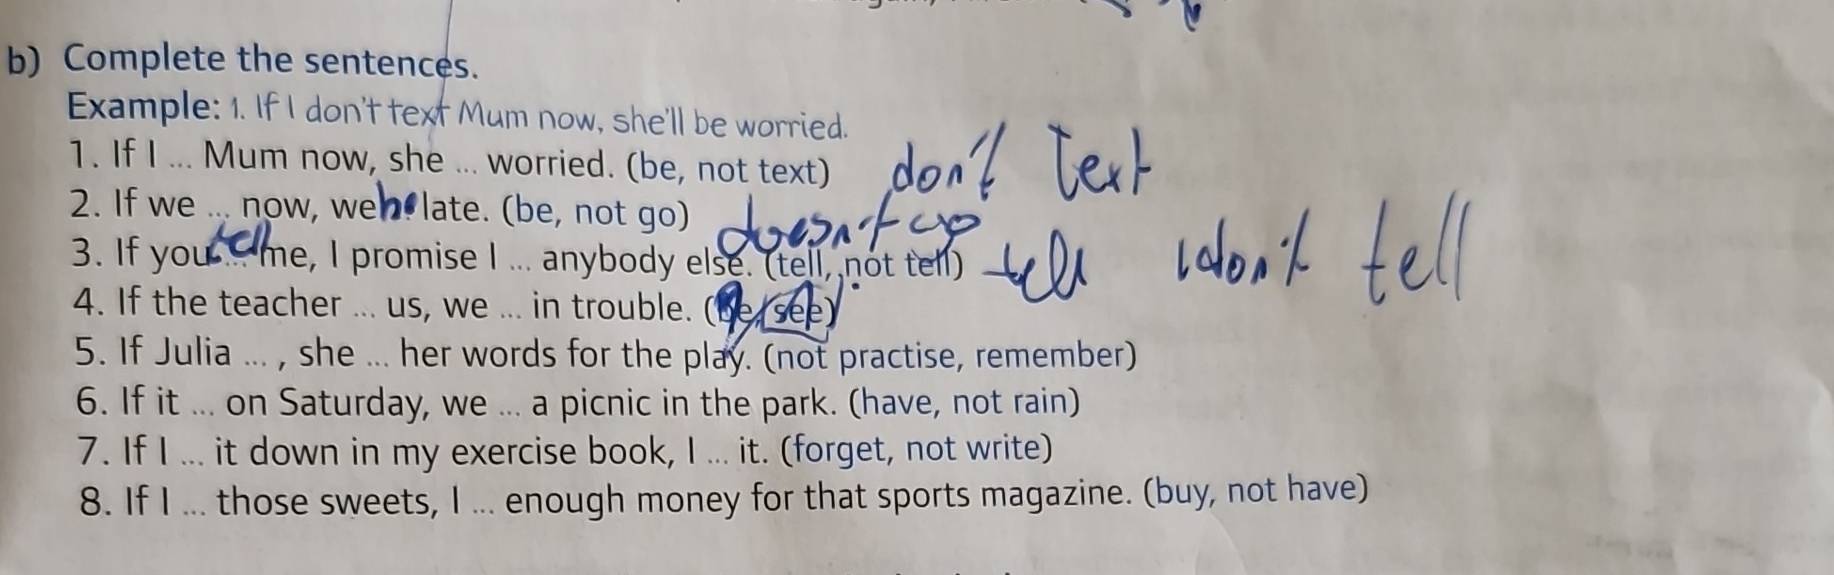 b) Complete the sentences.
Example: 1. If I don't text Mum now, she'll be worried.
1. If I ... Mum now, she ... worried. (be, not text) don't text
2. If we ... now, we be late. (be, not go) doesn't go
3. If you tell me, I promise I ... anybody else. (tell, not tell) tell I don't tell
4. If the teacher ... us, we ... in trouble. (be, see)
5. If Julia ... , she ... her words for the play. (not practise, remember)
6. If it ... on Saturday, we ... a picnic in the park. (have, not rain)
7. If I ... it down in my exercise book, I ... it. (forget, not write)
8. If I ... those sweets, I ... enough money for that sports magazine. (buy, not have)